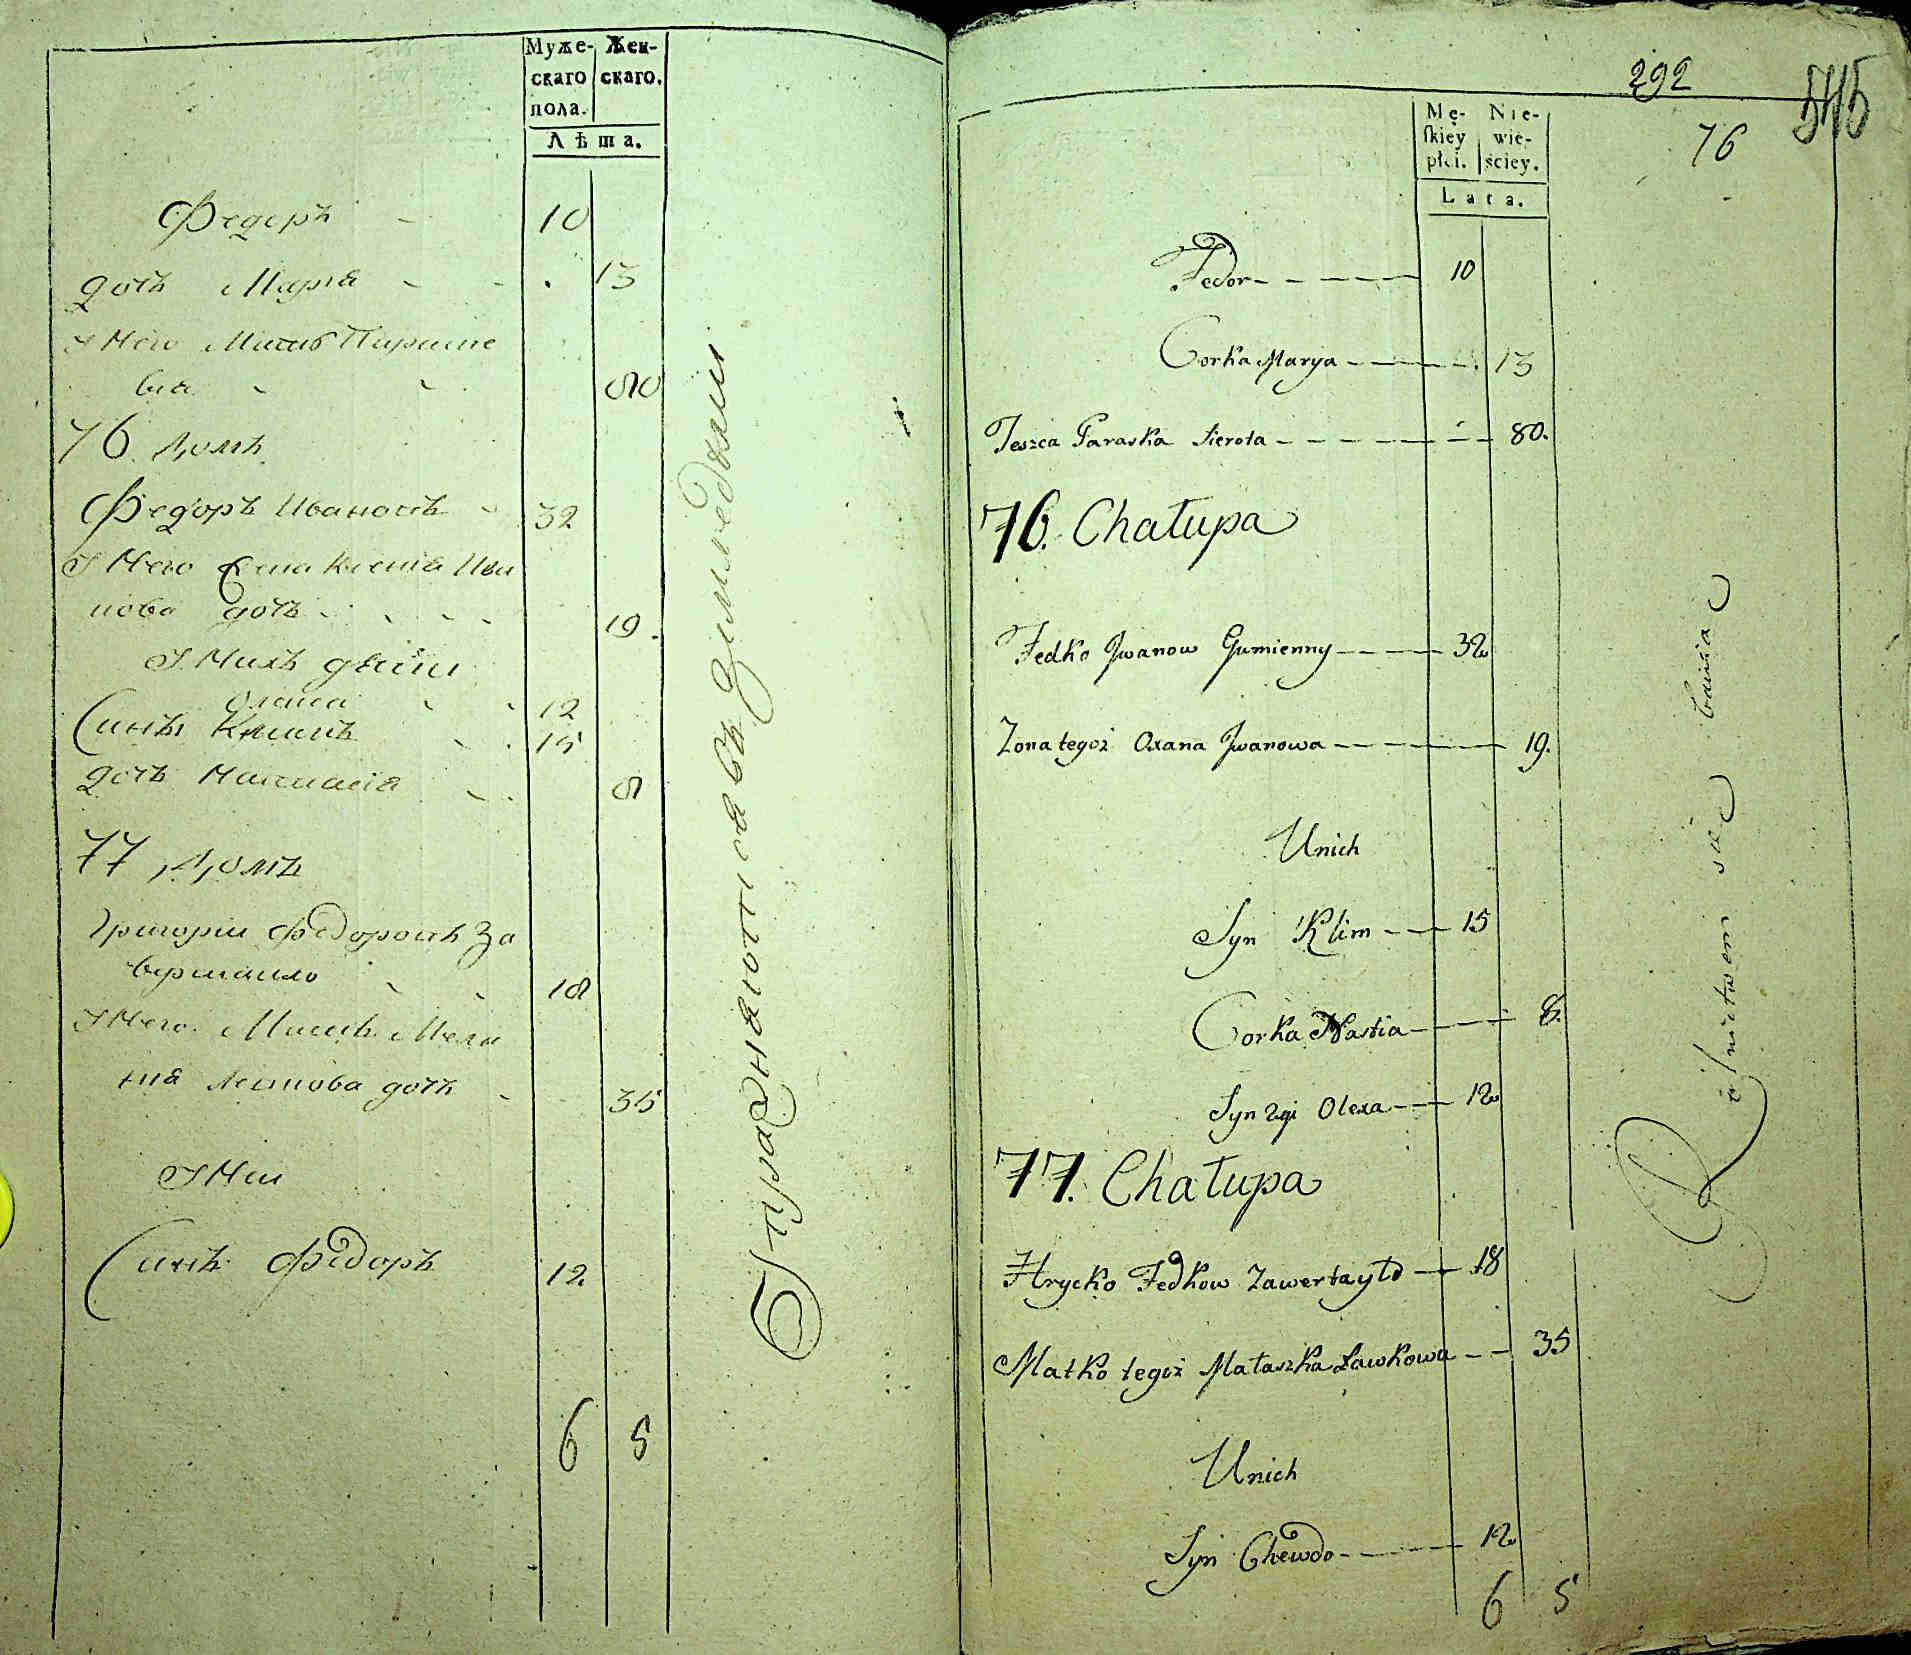 Муже-
скаго
пола.
Жен-
скаго.
Лѣта.
Федоръ - 10
дочь Марія - - . 13
У Него Мать Параске
віа 80
76 Домъ
Федоръ Ивановъ 32
У Него Жена Ксеніа Ива
нова дочь 19.
У Нихъ дѣти
Олекса 12
Синъ Климъ 15
дочь Настасіа 8
77 Домъ
Григорій Федоровъ За
вертаило 18
У Него Мать Мела
ніа Леонова дочь 35
У Неи
Синъ Федоръ 12
6 5
Упражняются въ Земледѣліи
292
545
76
Mę-
skiey
płci.
Nie-
wie-
ściey.
Lata.
Fedor 10
Corka Marya 13
Teszca Paraska sierota 80.
76. Chałupa
Fedko Jwanow Gumienny 32
Zona tegoż Oxana Jwanowa 19.
U nich
Syn Klim 15
Corka Nastia 8.
Syn 2gi Olexa 12
77. Chałupa
Hrycko Fedkow Zawertayło 18
Matko tegoż Małaszka Ławkowa 35
U nich
Syn Chewdo 12
6 5
Rolnictwem się bawia